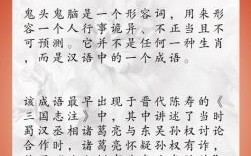 鬼头鬼脑是一个形容词，用来形
容一个人行事诡异、不正当且不
可预测。它并不是任何一种生肖
，而是汉语中的一个成语。
该成语最早出现于晋代陈寿的《
三国志注》中，其中讲述了当时
蜀汉丞相诸葛亮与东吴孙权讨论
合作时，诸葛亮怀疑孙权有诈，